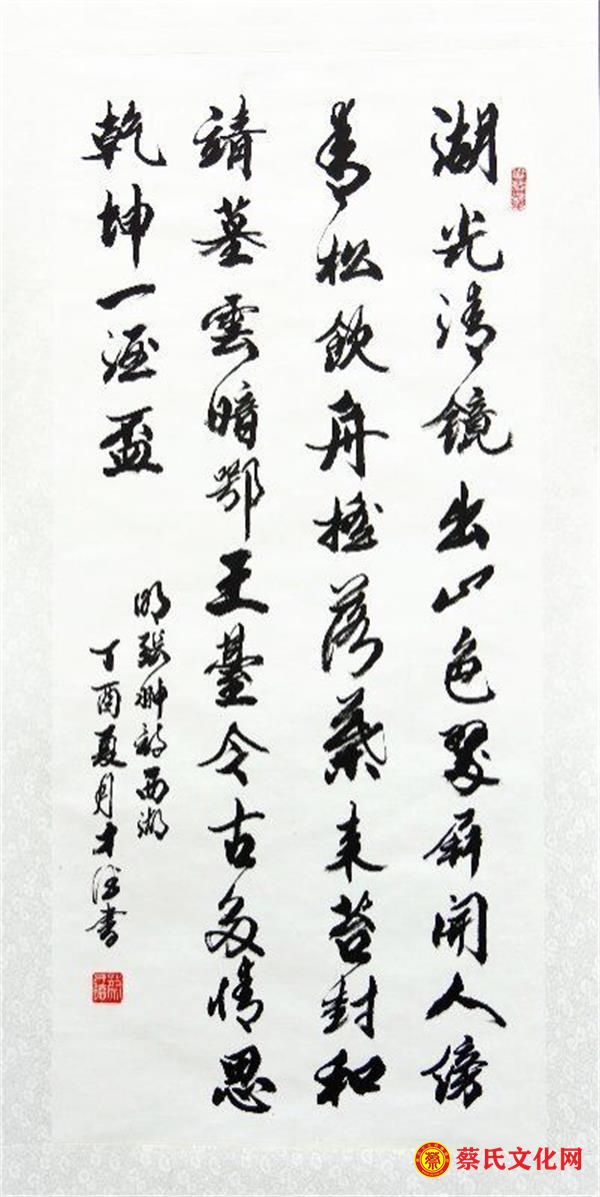 湖光清鏡出山色翠屏開人傍
青松飲舟搖落葉来苔封和
靖墓雲暗鄂王臺今古多情思
乾坤一酒盃
明張翀詩西湖
丁酉夏月才書
蔡氏文化网